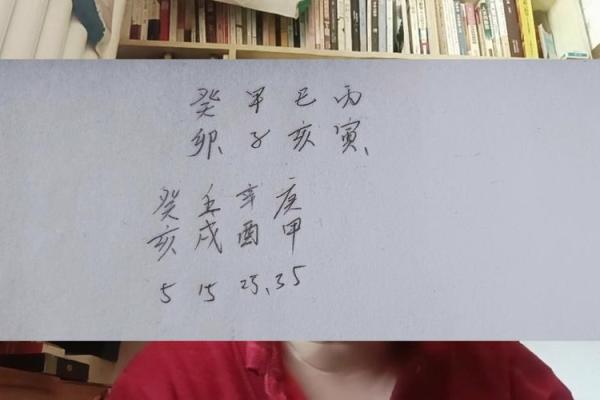 癸 甲 己 丙
卯、子 亥 寅、
癸 壬 辛 庚
亥 戌 酉 甲
5 15 25、35